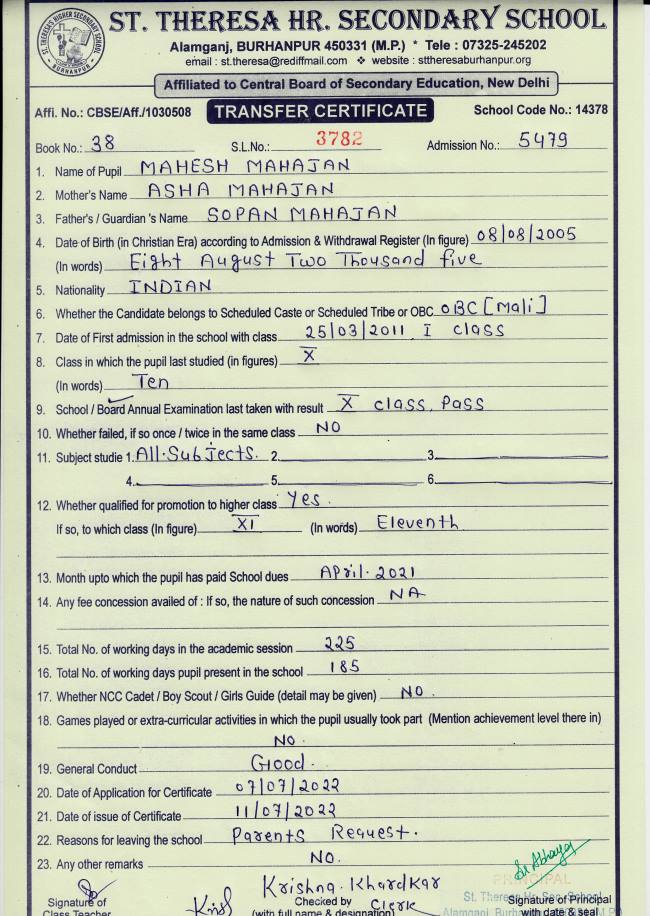 ST. THERESA'S HIGHER SECONDARY SCHOOL
BURHANPUR
ST. THERESA HR. SECONDARY SCHOOL
Alamganj, BURHANPUR 450331 (M.P.) * Tele : 07325-245202
email : st.theresa@rediffmail.com ❖ website : sttheresaburhanpur.org
Affiliated to Central Board of Secondary Education, New Delhi
Affi. No.: CBSE/Aff./1030508 TRANSFER CERTIFICATE School Code No.: 14378
Book No.: 38 S.L.No.: 3782 Admission No.: 5479
1. Name of Pupil MAHESH MAHAJAN
2. Mother's Name ASHA MAHAJAN
3. Father's / Guardian 's Name SOPAN MAHAJAN
4. Date of Birth (in Christian Era) according to Admission & Withdrawal Register (In figure) 08/08/2005
(In words) Eight August Two Thousand five
5. Nationality INDIAN
6. Whether the Candidate belongs to Scheduled Caste or Scheduled Tribe or OBC OBC [Mali]
7. Date of First admission in the school with class 25/03/2011, I class
8. Class in which the pupil last studied (in figures) X
(In words) Ten
9. School / Board Annual Examination last taken with result X class, Pass
10. Whether failed, if so once / twice in the same class NO
11. Subject studie 1. All.Subjects. 2. 3.
4. 5. 6.
12. Whether qualified for promotion to higher class Yes.
If so, to which class (In figure) XI (In words) Eleventh
13. Month upto which the pupil has paid School dues April. 2021
14. Any fee concession availed of : If so, the nature of such concession NA
15. Total No. of working days in the academic session 225
16. Total No. of working days pupil present in the school 185
17. Whether NCC Cadet / Boy Scout / Girls Guide (detail may be given) NO.
18. Games played or extra-curricular activities in which the pupil usually took part (Mention achievement level there in)
NO.
19. General Conduct Good.
20. Date of Application for Certificate 07/07/2022
21. Date of issue of Certificate 11/07/2022
22. Reasons for leaving the school Parents Request.
23. Any other remarks NO.
Krishna. Khardkar
PRINCIPAL
Signature of Checked by Clerk Signature of Principal
Class Teacher (with full name & designation) with date & seal